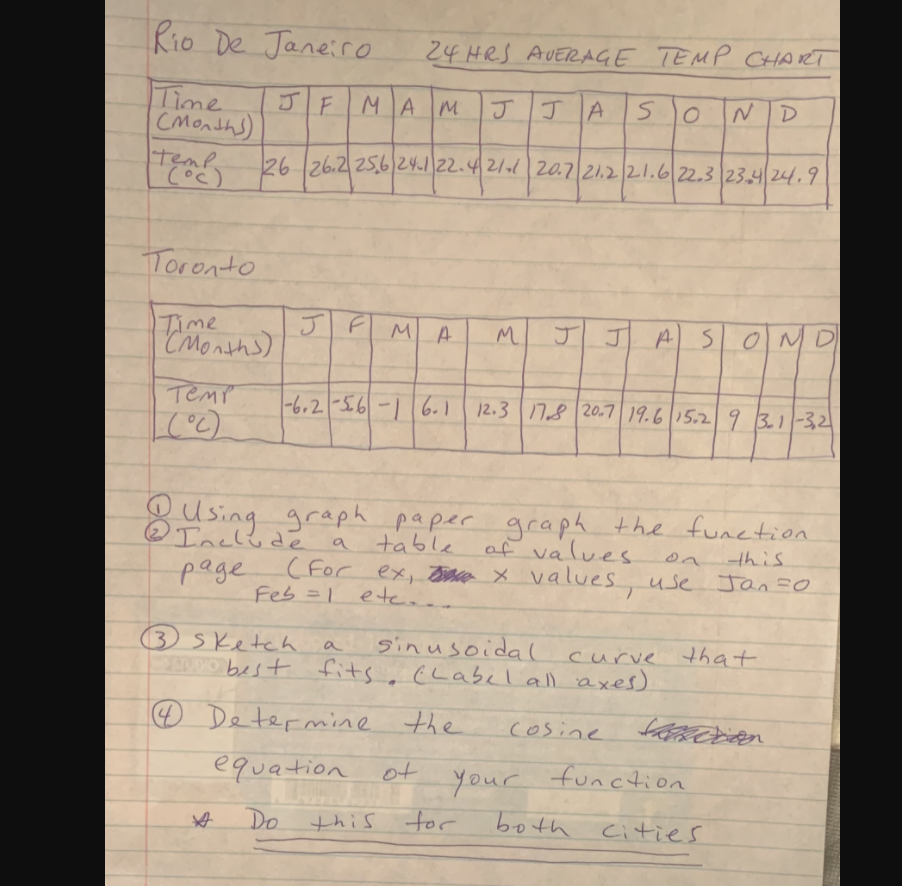 Rio De Janeiro 24 HRS AVERAGE TEMP CHART
Time (Months) J F M A M J J A S O N D
Temp (°C) 26 26.2 25.6 24.1 22.4 21.1 20.7 21.2 21.6 22.3 23.4 24.9
Toronto
Time (Months) J F M A M J J A S O N D
Temp (°C) -6.2 -5.6 -1 6.1 12.3 17.8 20.7 19.6 15.2 9 3.1 -3.2
① Using graph paper graph the function
② Include a table of values on this
page (For ex, x values, use Jan=0
Feb=1 etc....
③ Sketch a sinusoidal curve that
best fits. (Label all axes)
④ Determine the cosine
equation of your function
* Do this for both cities